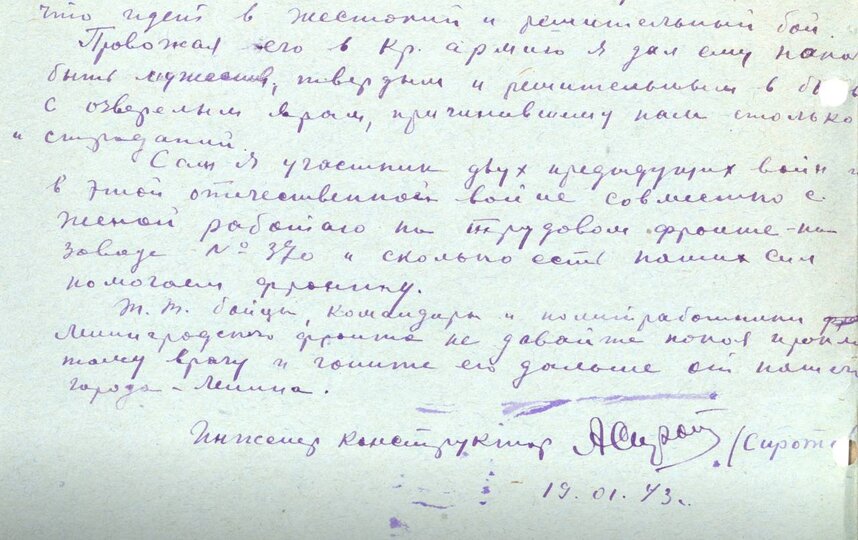 что идет в жестокий и решительный бой.
Провожая его в Кр. армию я дал ему нака
быть мужеств, твердым и решительным в б
с озверелым врагом, причинившему нам столько
и страданий.
Сам я участник двух предыдущих войн и
в этой отечественной войне совместно с
женой работаю на трудовом фронте - на
заводе № 370 и сколько есть наших сил
помогаем фронту.
Т.т. бойцы, командиры и политработники
Ленинградского фронта не давайте покоя прокля
тому врагу и гоните его дальше от нашего
города - Ленина.
Инженер конструктор АСирот (Сироте
19.01.43г.